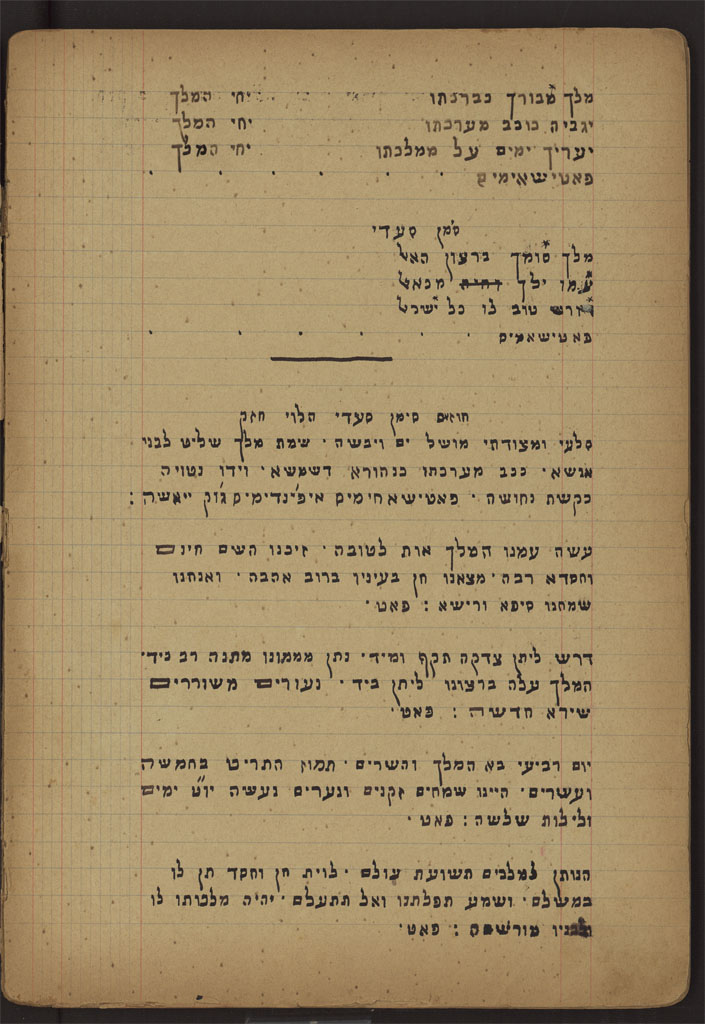 מלך מבורך בברכתו יחי המלך
יגביה כוכב מערכתו יחי המלך
יעריך ימים על ממלכתו יחי המלך
פאטישאימיס
סמן סעדי
מלך סומך ברעון האל
עמו ילך מכאל
דורש טוב לו כל ישראל
פאטישאמיס
סימן סעדי הלוי חזק
סלעי ומצודתי מושל ים ויבשה · שמת מלך שליט לבני
אנושא · ככב מערכתו כנהורא דשמשא · וידו נטויה
כקשת נחושה · פאטישאחימיס איפ'ינדימיס ג'וק ייאשה :
עשה עמנו המלך אות לטובה · זיכנו השם חינם
וחסדא רבה · מצאנו חן בעיניו ברוב אהבה · ואנחנו
שמחנו סיפא ורישא : פאט ·
דרש ליתן צדקה תקף ומיד · נתן מממונו מתנה רב ניד ·
המלך עלה ברצונו ליתן ביד · נעורים משוררים
שירא חדשה : פאט ·
יום רביעי בא המלך והשרים · תמוז התריט בחמשה
ועשרים · היינו שמחים זקנים ונערים נעשה יו״ט ימים
ולילות שלשה : פאט ·
הנותן למלכים תשועת עולם · לוית חן וחסד תן לו
במשולם · ושמע תפלתנו ואל תתעלם · יהיה מלכותו לו
ולבניו מורשה : פאט ·